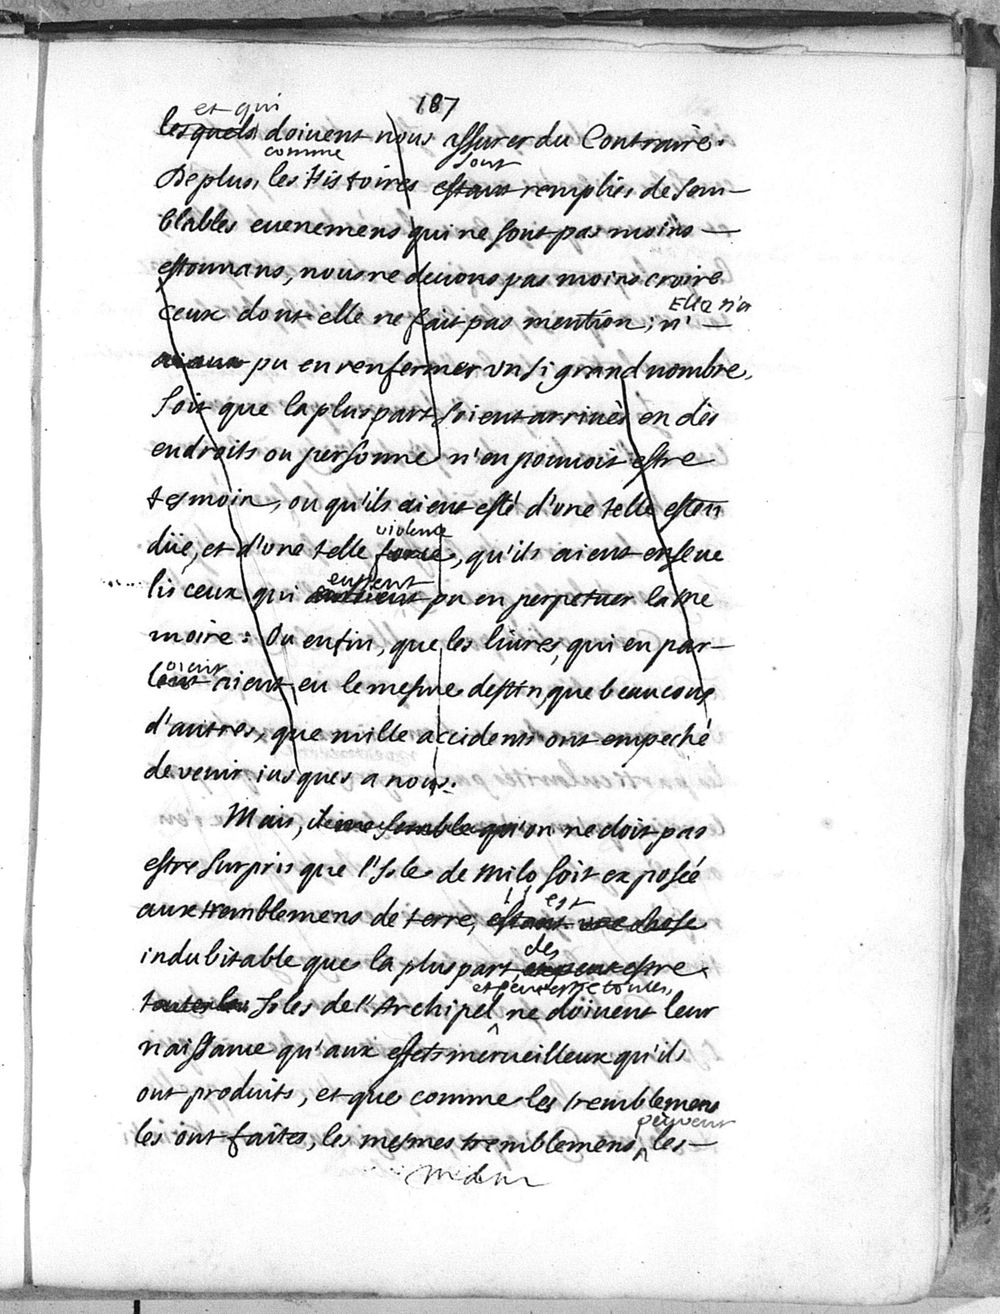 187
et qui
lesquels doivent nous assurer du Contraire.
comme sont
De plus, les Histoires estant remplies de sem—
blables evenemens qui ne sont pas moins —
estonnans, nous ne devons pas moins croire
Elle n'a
ceux dont elle ne fait pas mention; n' —
aiant pu en renfermer un si grand nombre,
soit que la pluspart soient arrivés en dès
endroits ou personne n'en pouvoit estre
tesmoin, ou qu'ils aient esté d'une telle esten
violence
düe, et d'une telle force, qu'ils aient enseve
eussent
lis ceux qui pu en perpetuer la me
moire: Ou enfin, que les livres, qui en par—
oient
lent aient eu le mesme destin, que beaucoup
d'autres, que mille accidents ont empeché
de venir iusques a nous.
Mais, il me semble qu'on ne doit pas
estre surpris que l'Isle de Milo soit exposée
est
aux tremblemens de terre, estant une chose
des
indubitable que la pluspart, et peut estre
et peut estre toutes,
toutes les Isles de l'Archipel ^ ne doivent leur
naissance qu'aux effets merveilleux qu'ils
ont produits, et que comme les tremblemens
peuvent
les ont faites, les mesmes tremblemens ^ les —